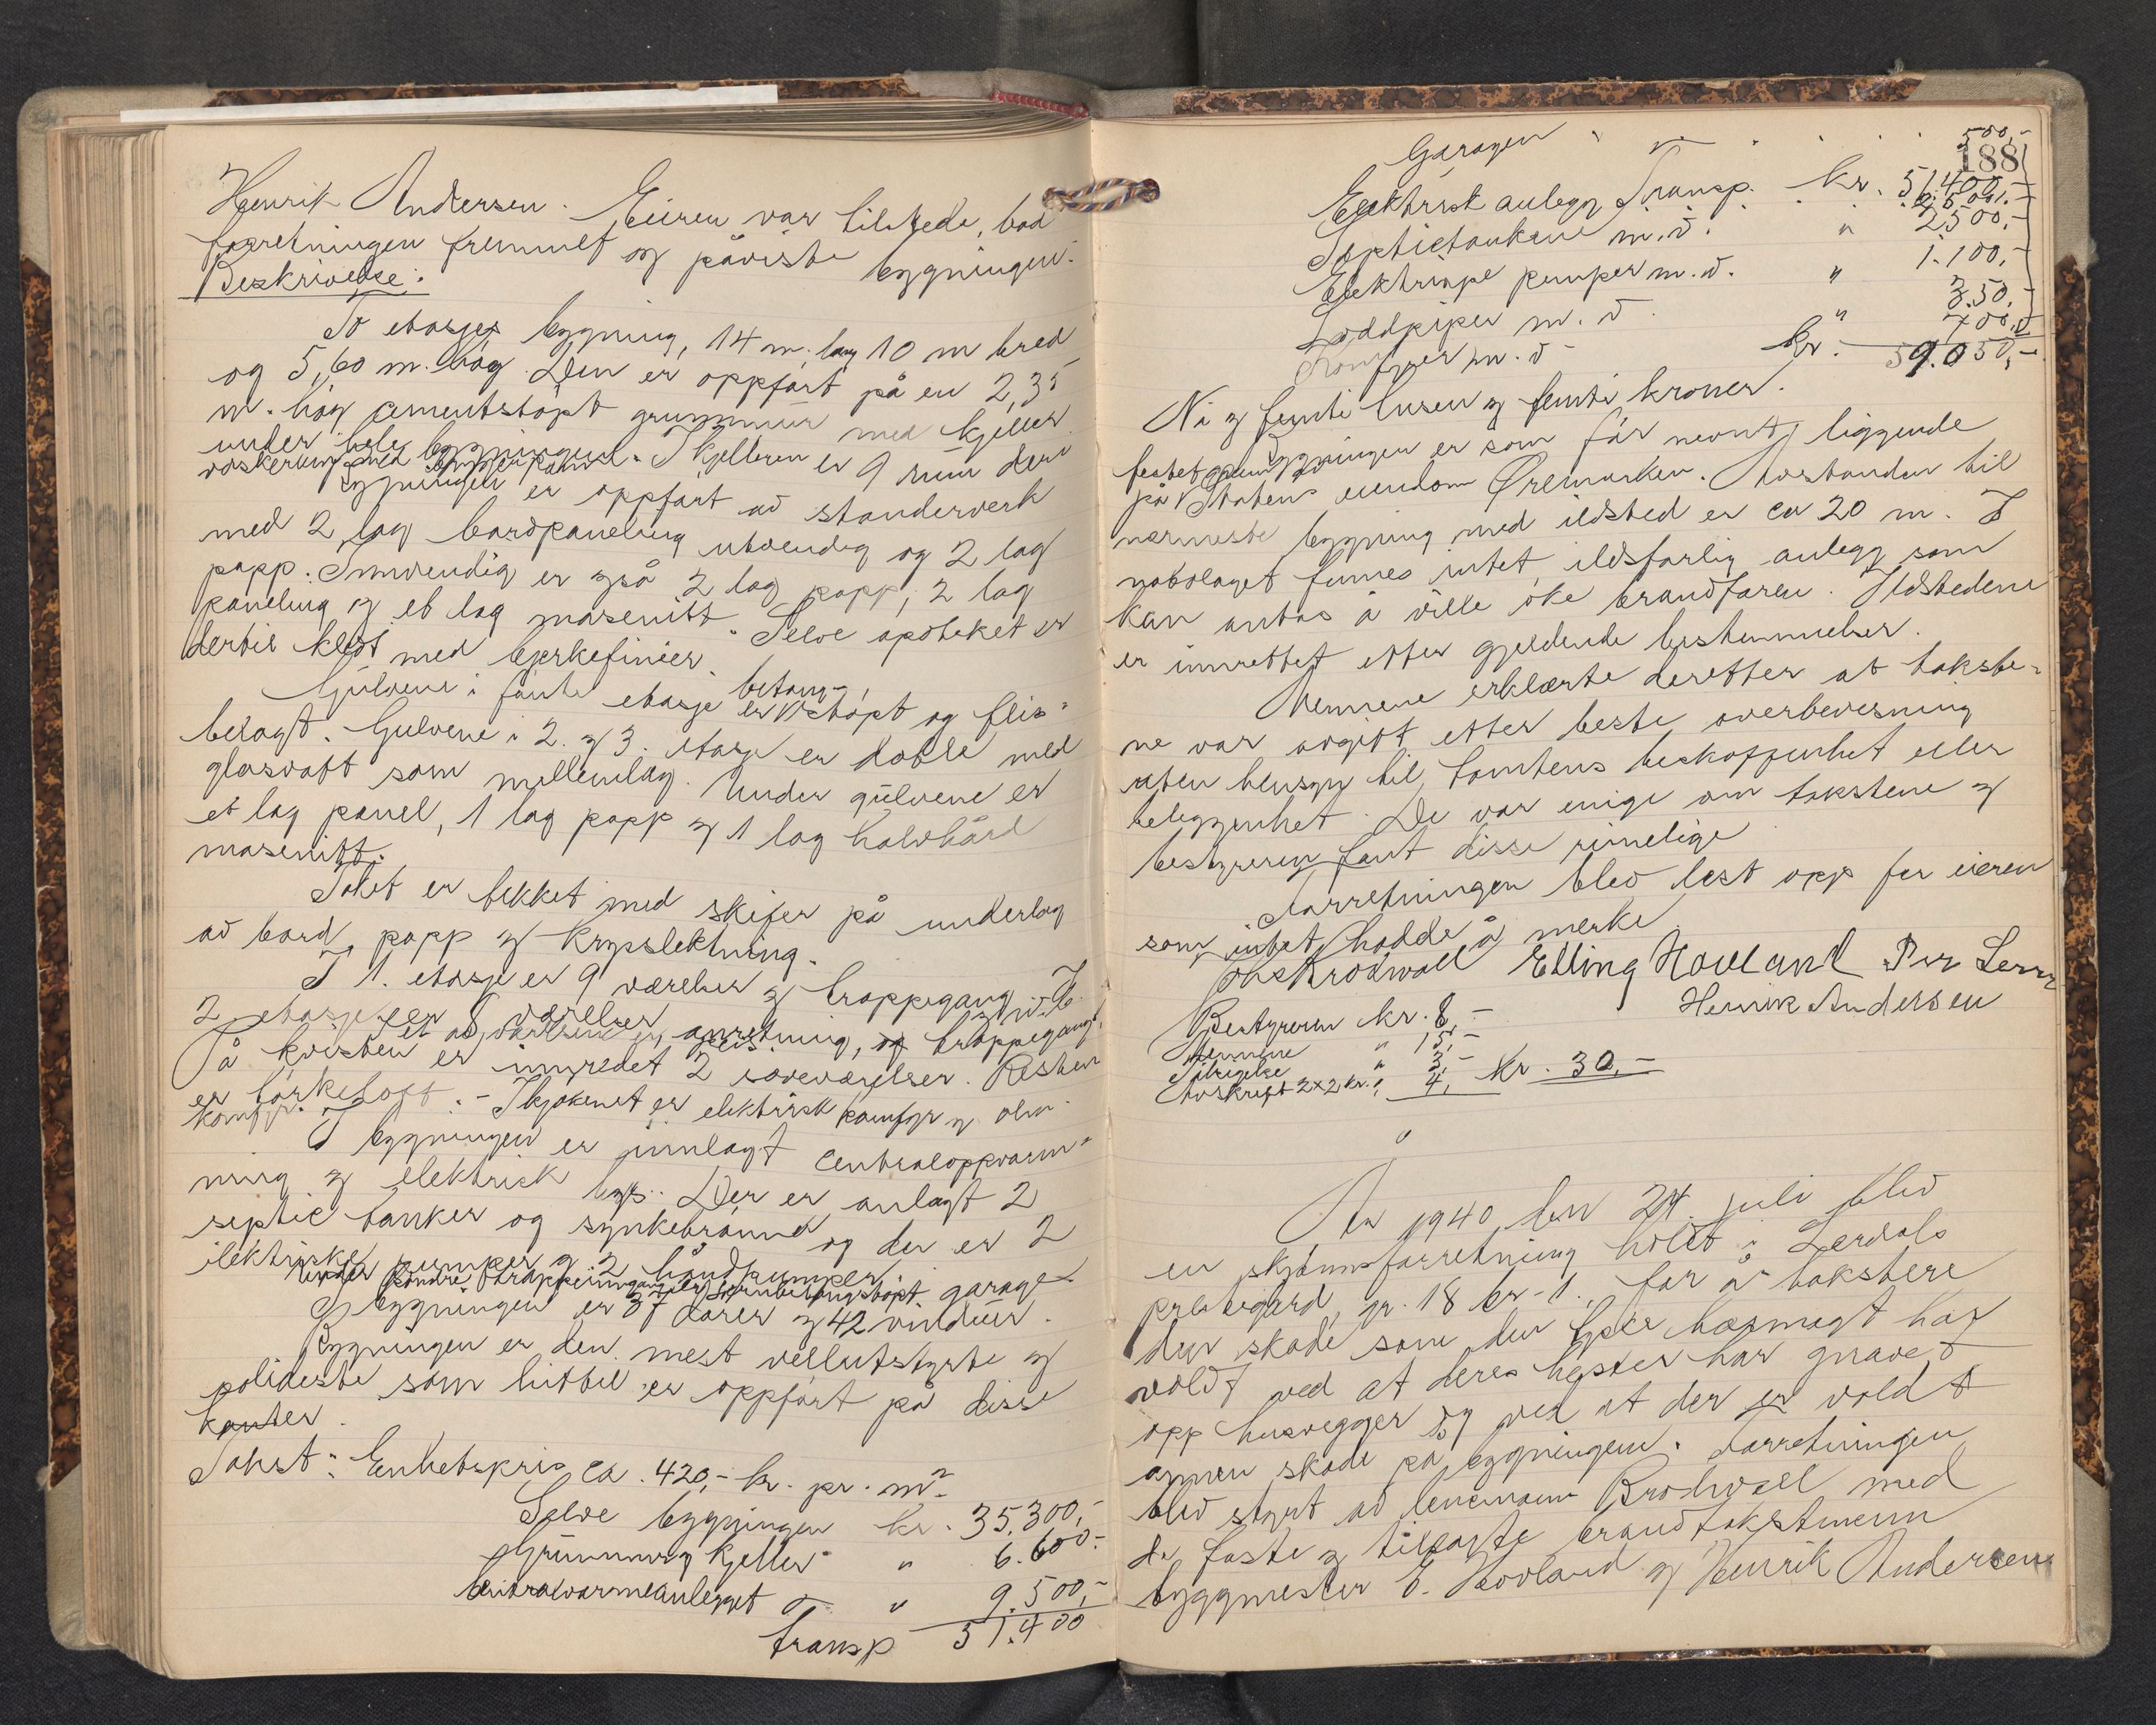 Henrik Andersen. Eieren var tilstede, bad
forretningen fremmet og påviste bygningen.
Beskrivelse:
To etasjes bygning, 14 m. lang 10 m bred
og 5,60 m. høg. Den er oppført på en 2,35
m. høg cementstøpt grunnmur med kjeller
under hele bygningen. I kjelleren er 9 rum derav
vaskerum med bryggepanne.
Bygningen er oppført av standerverk
med 2 lag bordpaneling utvendig og 2 lag
papp. Innvendig er også 2 lag papp, 2 lag
paneling og et lag masenitt. Selve apoteket er
dertil kledt med bjerkefinier.
Gulvene i første etasje er betong-støpt og flis-
belagt. Gulvene i 2. og 3. etasje er doble med
glasvatt som mellemlag. Under gulvene er
et lag panel, 1 lag papp og 1 lag halvhård
masenitt.
Taket er tekket med skifer på underlag
av bord, papp og krysslektning.
I 1. etasje er 9 værelser og trappegang. I
2 etasje er 8 værelser og w.c.
et av værelsene er anretning, og trappegang.
På kvisten er innredet 2 soveværelser. Resten
er tørkeloft. - I kjøkenet er elektrisk komfyr og alm.
komfyr.
I bygningen er innlagt centraloppvarm-
ning og elektrisk lys. Der er anlagt 2
septic tanker og synkebrønn og der er 2
elektriske pumper og 2 håndpumper.
Under søndre trappeinngang er jernbetongstøpt garage
I bygningen er 37 dører og 42 vinduer.
Bygningen er den mest velutstyrte og
solideste som hittil er oppført på disse
kanter.
Takst: Enhetspris ca. 420,- kr. pr. m²
Selve bygningen kr. 35.300,-
Grunnmur og kjeller " 6.600.-
Sentralvarmeanlegget " 9.500,-
Transp 51.400
188
Garagen 500,-
Transp. kr. 51.400,-
Elektrisk anlegg
Septictankene m.v. " 2500,-
Elektriske pumper m.v. " 1.100,-
Loddpiper m.v. " 350,-
Komfyrer m.v. " 700,-
kr. 59.050,-
Ni og femti tusen og femti kroner.
Bygningen er som før nevnt liggende
på Statens eiendom Øremarken. Avstanden til
nærmeste bygning med ildsted er ca 20 m. I
nabolaget finnes intet ildsfarlig anlegg som
kan antas å ville øke brandfaren. Ildstedene
er innrettet etter gjeldende bestemmelser.
Mennene erklærte deretter at takste-
ne var avgitt etter beste overbevisning
uten hensyn til tomtens beskaffenhet eller
beliggenhet. De var enige om takstene og
bestyreren fant disse rimelige
Forretningen blev lest opp for eieren
som intet hadde å merke
Brodwall Elling Hovland Per Lerum
Henrik Andersen
Bestyreren kr. 8,-
Mennene " 15,-
" 3,-
Avskrift 2x2 kr. " 4,- Kr. 30,-
År 1940 den 24. juli blev
en skjønnsforretning holdt i Lerdals
prestegård, gr. 18 br. 1., for å takstere
den skade som den tyske hærmagt har
voldt ved at deres hester har gnavet
opp husvegger og ved at der er voldt
annen skade på bygningene. Forretningen
blev styrt av lensmann Brodwall med
de faste og tilsatte brandtakstmenn
byggmester E. Hovland og Henrik Andersen